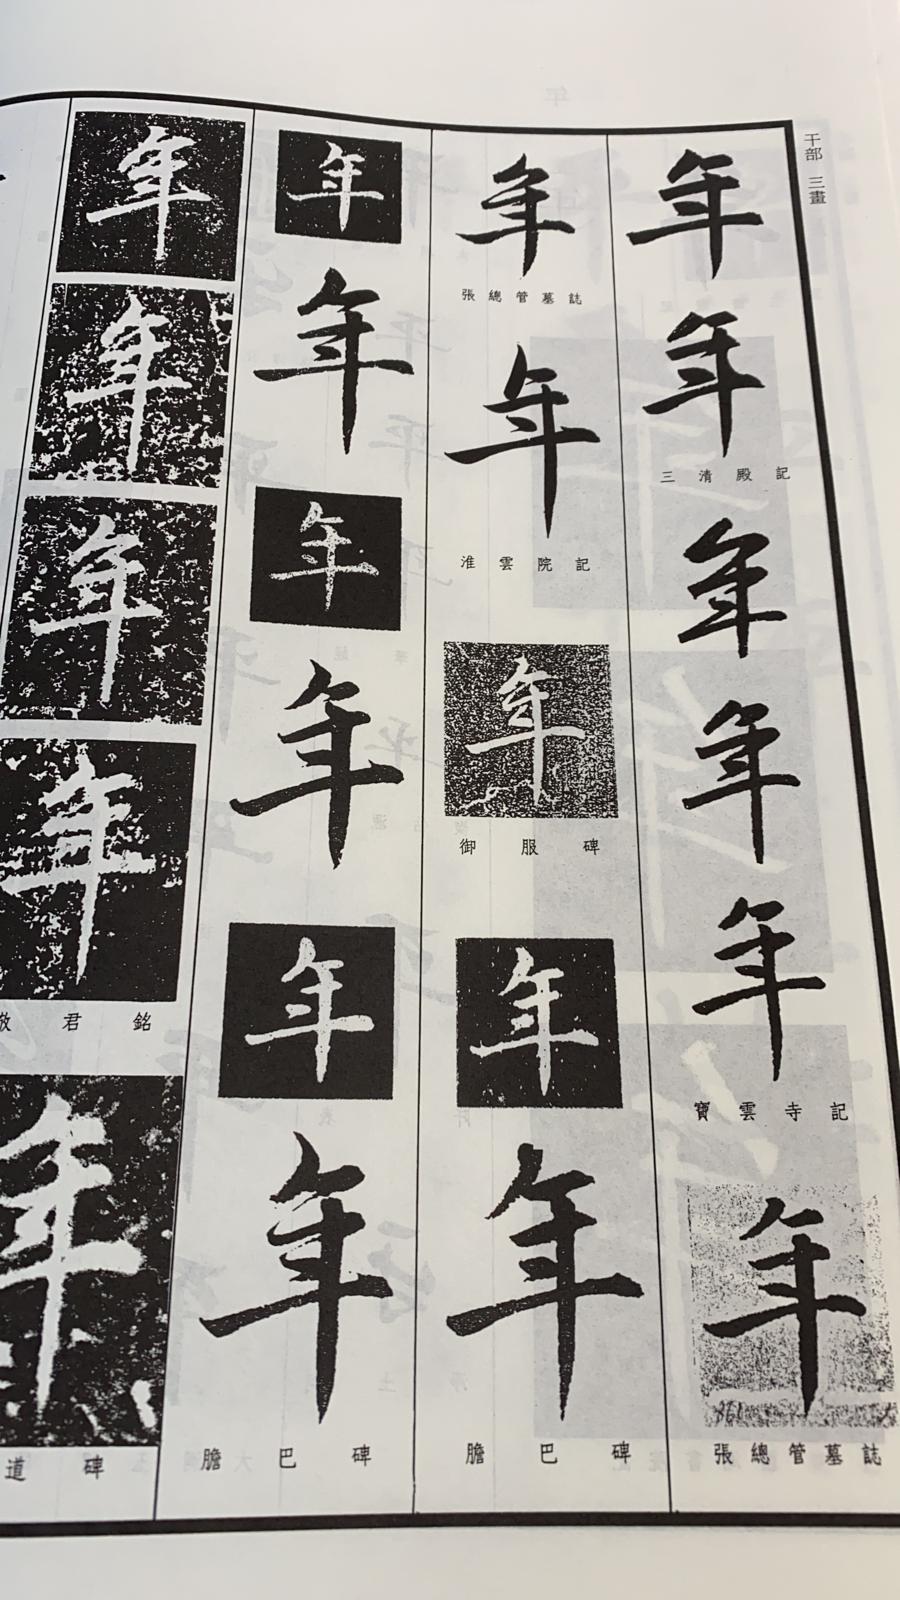 干部 三畫
年
年
三清殿記
年
年
年
寶雲寺記
年
張總管墓誌
年
張總管墓誌
年
淮雲院記
年
御服碑
年
年
膽巴碑
年
年
年
年
年
年
膽巴碑
年
年
年
年
君銘
年
道碑